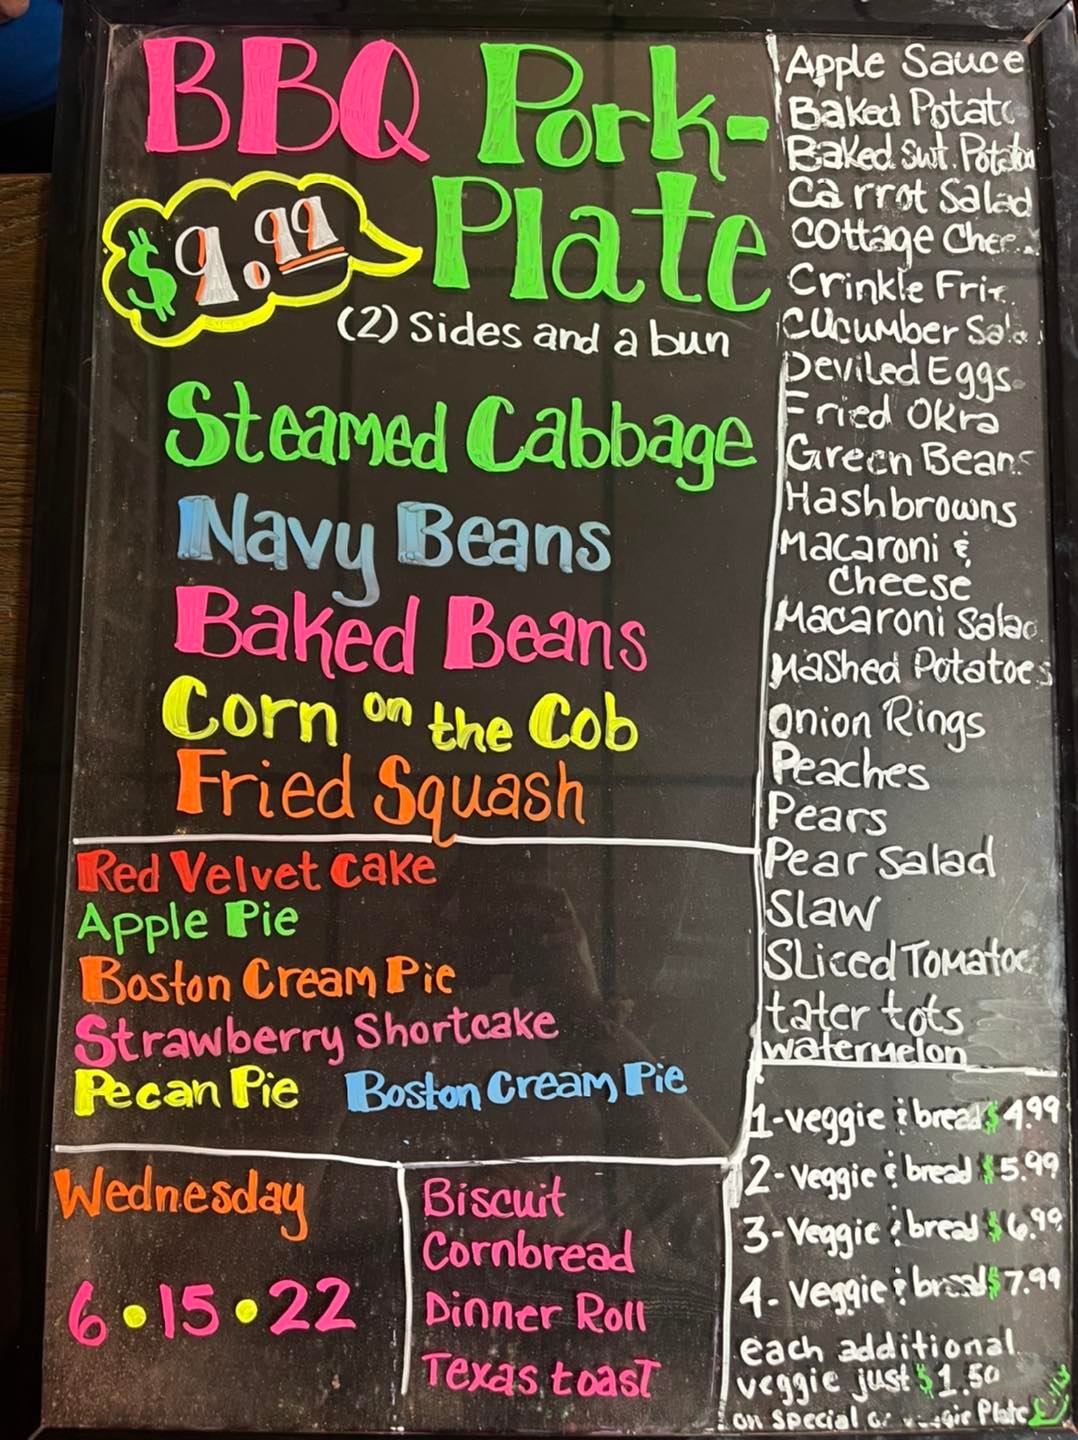 BBQ Pork-
Plate
$9.99
(2) Sides and a bun
Steamed Cabbage
Navy Beans
Baked Beans
Corn on the Cob
Fried Squash
Red Velvet Cake
Apple Pie
Boston Cream Pie
Strawberry Shortcake
Pecan Pie Boston Cream Pie
Wednesday
6•15•22
Biscuit
Cornbread
Dinner Roll
Texas toast
Apple Sauce
Baked Potato
Baked Swt. Potatoe
Carrot Salad
Cottage Chee
Crinkle Frie
Cucumber Sala
Deviled Eggs
Fried Okra
Green Beans
Hashbrowns
Macaroni &
Cheese
Macaroni Salad
Mashed Potatoes
Onion Rings
Peaches
Pears
Pear Salad
Slaw
Sliced Tomatoe
tater tots
watermelon
1-veggie & bread $4.99
2-Veggie & bread $5.99
3-Veggie & bread $6.99
4-Veggie & bread $7.99
each additional
veggie just $1.50
on special or veggie Plate